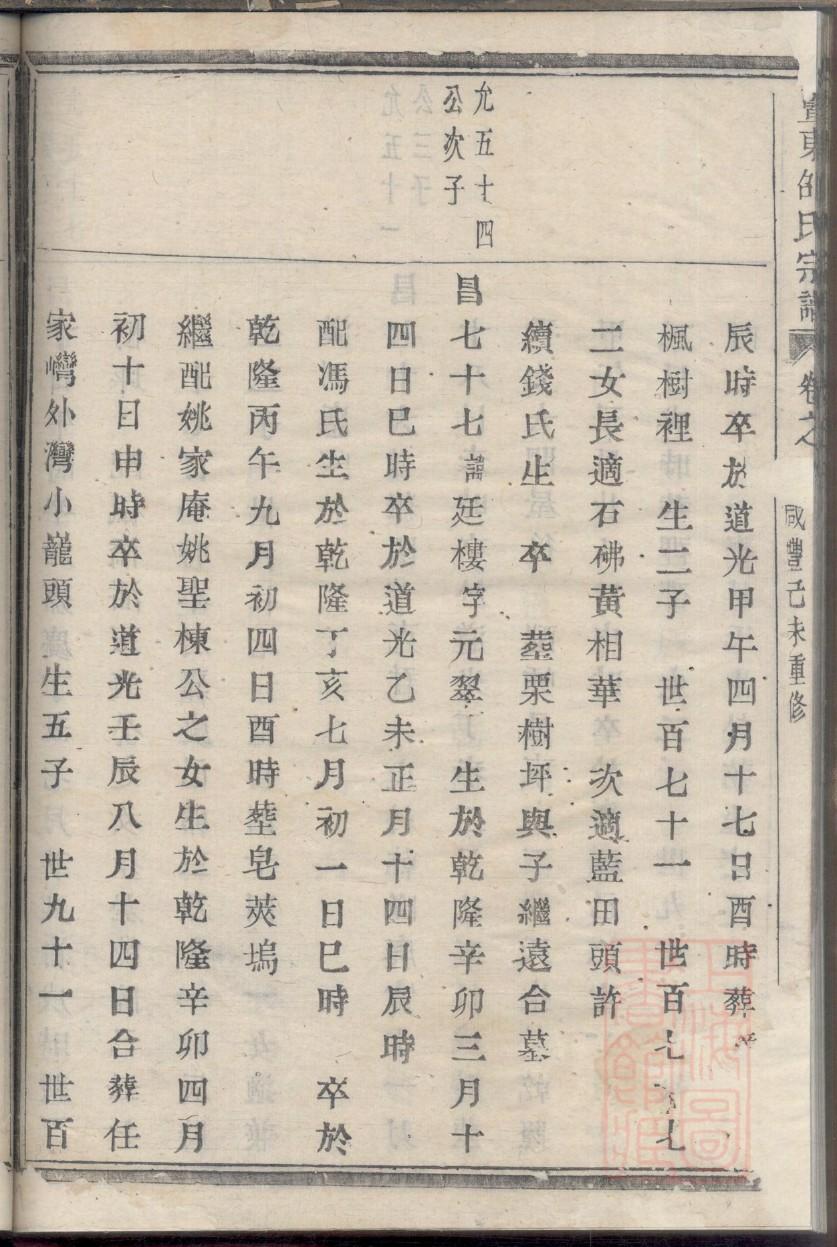 宣東邵氏宗譜 卷之
咸豐己未重修
辰時卒於道光甲午四月十七日酉時葬
楓樹裡 生二子 世百七十一 世百七 七
二女長適石砩黃相華 次適藍田頭許
續錢氏生 卒 塟栗樹坪與子繼遠合墓
允五十四
公次子
昌七十七諱廷樓字元翠 生於乾隆辛卯三月十
四日巳時卒於道光乙未正月十四日辰時
配馮氏生於乾隆丁亥七月初一日巳時 卒於
乾隆丙午九月初四日酉時塟皂莢塢
繼配姚家庵姚聖棟公之女生於乾隆辛卯四月
初十日申時卒於道光壬辰八月十四日合葬任
家嶨外灣小龍頭 生五子 世九十一 世百